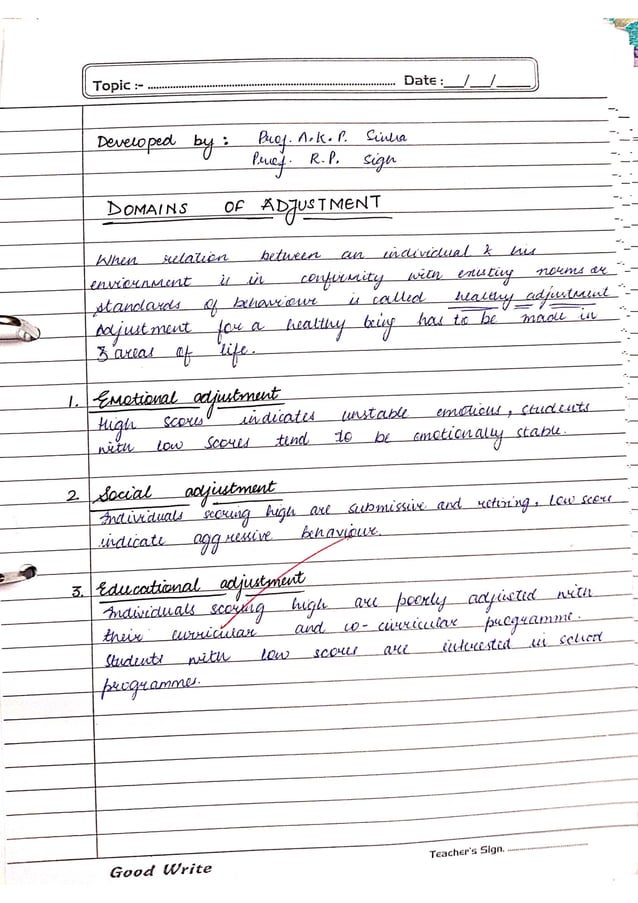 Topic :- Date : __/__/____
Developed by : Prof. A.K.P. Sinha
Prof. R.P. Sigh
DOMAINS OF ADJUSTMENT
When relation between an individual & his
enviornment is in confirmity with existing norms or
standards of behaviour is called healthy adjustment
Adjustment for a healthy being has to be made in
3 areas of life.
1. Emotional adjustment
High scores indicates unstable emotions, students
with low scores tend to be emotionally stable.
2. Social adjustment
Individuals scoring high are submissive and retiring, low score
indicate aggressive behaviour.
3. Educational adjustment
Individuals scoring high are poorly adjusted with
their curricular and co-curricular programme.
Students with low scores are interested in school
programmes.
Teacher's Sign.
Good Write